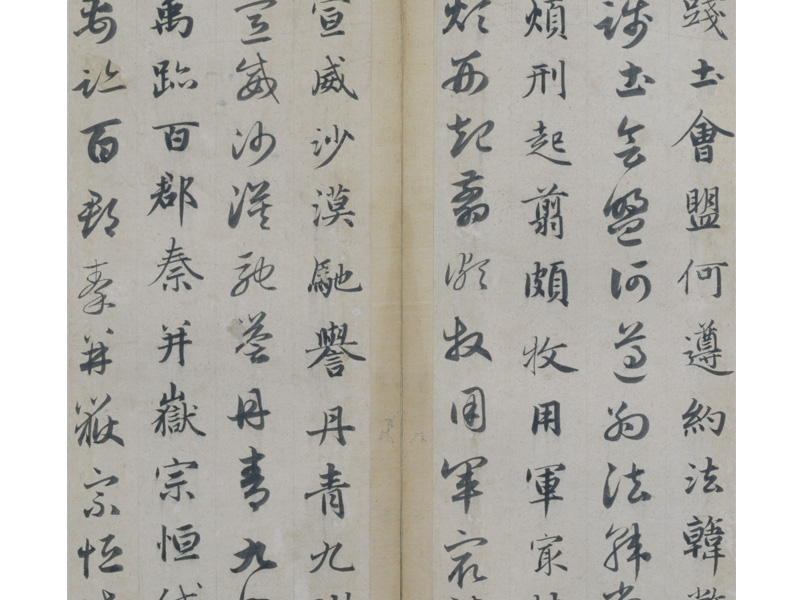 踐土會盟何遵約法韓
踐土會盟何遵約法韓
煩刑起翦頗牧用軍冣
煩刑起翦頗牧用軍冣
宣威沙漠馳譽丹青九
宣威沙漠馳譽丹青九
禹跡百郡秦并嶽宗恒
禹跡百郡秦并嶽宗恒